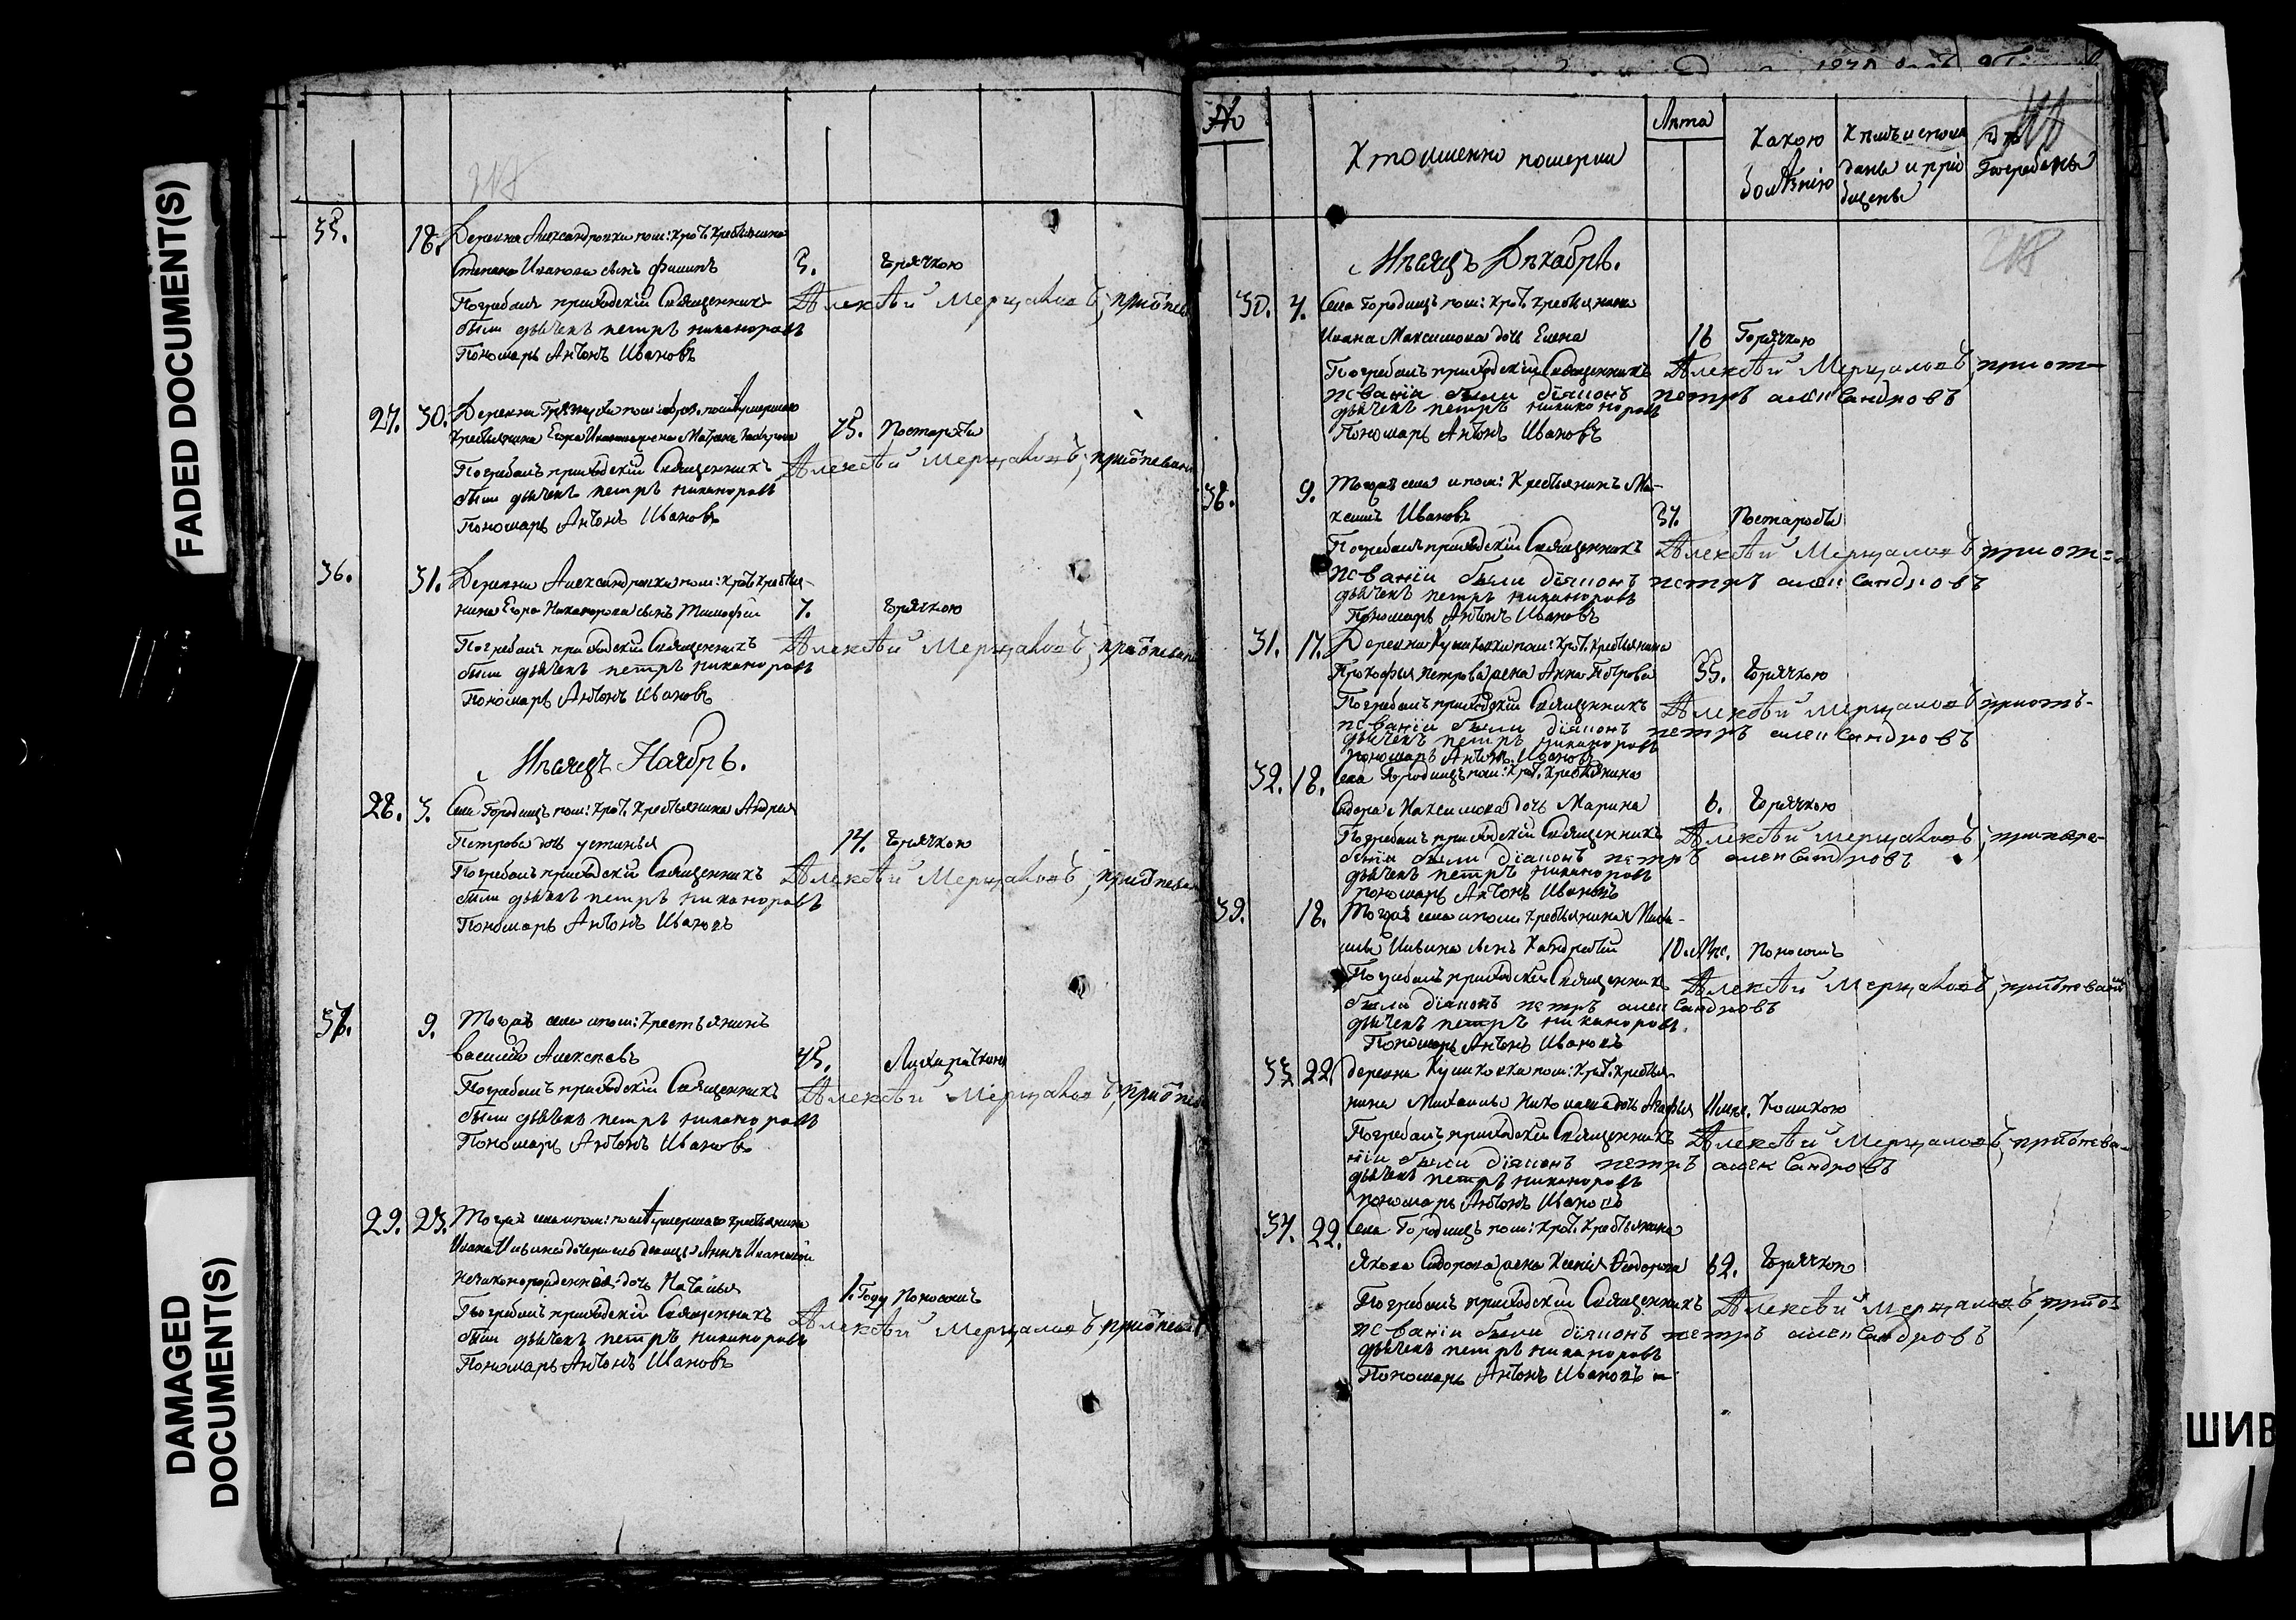 FADED DOCUMENT(S)
DAMAGED DOCUMENT(S)
35. 18. Деревни Александровки пом: Кроҍ. Крестьянина
Степана Иванова сынъ Филипъ 3. Горячкою
Погребалъ приходскій Священникъ Алексѣй Мерцаловъ, при отпев
были дьячекъ петръ никаноровъ
Пономарь Антонъ Ивановъ
27. 30. Деревни пом: умершаго
крестьянина Егора жена 75. Постарости
Погребалъ приходскій Священникъ Алексѣй Мерцаловъ, при отпевани
были дьячекъ петръ никаноровъ
Пономарь Антонъ Ивановъ
36. 31. Деревни Александровки пом: Крестья-
нина Егора Никанорова сынъ Тимофей 7. Горячкою
Погребалъ приходскій Священникъ Алексѣй Мерцаловъ, при отпевани
были дьячекъ петръ никаноровъ
Пономарь Антонъ Ивановъ
Мѣсяцъ Ноябрь.
28. 3. Села Городищъ пом: Крестьянина Андрея
Петрова дочь устинья 14. Горячкою
Погребалъ приходскій Священникъ Алексѣй Мерцаловъ, при отпева
были дьячекъ петръ никаноровъ
Пономарь Антонъ Ивановъ
37. 9. Тогожъ села и пом: Крестьянинъ
Василій Алексеевъ 45. Лихорадкою
Погребалъ приходскій Священникъ Алексѣй Мерцаловъ, при отпев
были дьячекъ петръ никаноровъ
Пономарь Антонъ Ивановъ
29. 23. Тогожъ села и пом: умершаго крестьянина
Ивана дочери его девицы Анны Ивановой
незаконорожденная дочь Наталья 1. Году Поносомъ
Погребалъ приходскій Священникъ Алексѣй Мерцаловъ, при отпева
были дьячекъ петръ никаноровъ
Пономарь Антонъ Ивановъ
Кто именно померли
Лѣта
Какою болѣзнію
Кѣмъ исповѣданы и пріобщены
Гдѣ Погребены
218
Мѣсяцъ Декабрь.
30. 4. Села Городищъ пом: Крестьянина
Ивана Максимова дочь Елена 16 Горячкою
Погребалъ приходскій Священникъ Алексѣй Мерцаловъ, при от-
певаніи были діяконъ петръ александровъ
дьячекъ петръ никаноровъ
Пономарь Антонъ Ивановъ
38. 9. Тогожъ села и пом: Крестьянинъ Ма-
ксимъ Ивановъ 57. Постарости
Погребалъ приходскій Священникъ Алексѣй Мерцаловъ при от=
певаніи были діяконъ петръ александровъ
дьячекъ петръ никаноровъ
Пономарь Антонъ Ивановъ
31. 17. Деревни Куликовки пом: Крестьянина
Прокофья Петрова жена Анна Петрова 35. Горячкою
Погребалъ приходскій Священникъ Алексѣй Мерцаловъ, при отъ-
певаніи были діяконъ петръ александровъ
дьячекъ петръ никаноровъ
пономарь Антонъ Ивановъ
32. 18. Села Городищъ пом: Крестьянина
Сидора Максимова дочь Марина 6. Горячкою
Погребалъ приходскій Священникъ Алексѣй Мерцаловъ,
были діяконъ петръ александровъ
дьячекъ петръ никаноровъ
пономарь Антонъ Ивановъ
39. 18. Тогожъ села и пом: Крестьянина Миха-
илы Ильина сынъ Кондратій 10. Мѣс. Поносомъ
Погребалъ приходскій Священникъ Алексѣй Мерцаловъ, при отпеваніи
были діяконъ петръ александровъ
дьячекъ петръ никаноровъ.
Пономарь Антонъ Ивановъ
33. 22. деревни Куликовки пом: Крестья-
нина Михаилы Николаева дочь Агафья Коликою
Погребалъ приходскій Священникъ Алексѣй Мерцаловъ, при отпева-
ніи были діяконъ петръ александровъ
дьячекъ петръ никаноровъ
пономарь Антонъ Ивановъ
34. 22. Села Городищъ пом: Крестьянина
Якова Сидорова жена Ксенія Федорова 62. Горячкою
Погребалъ приходскій Священникъ Алексѣй Мерцаловъ, при от-
певаніи были діяконъ петръ александровъ
дьячекъ петръ никаноровъ
Пономарь Антонъ Ивановъ
ШИВ